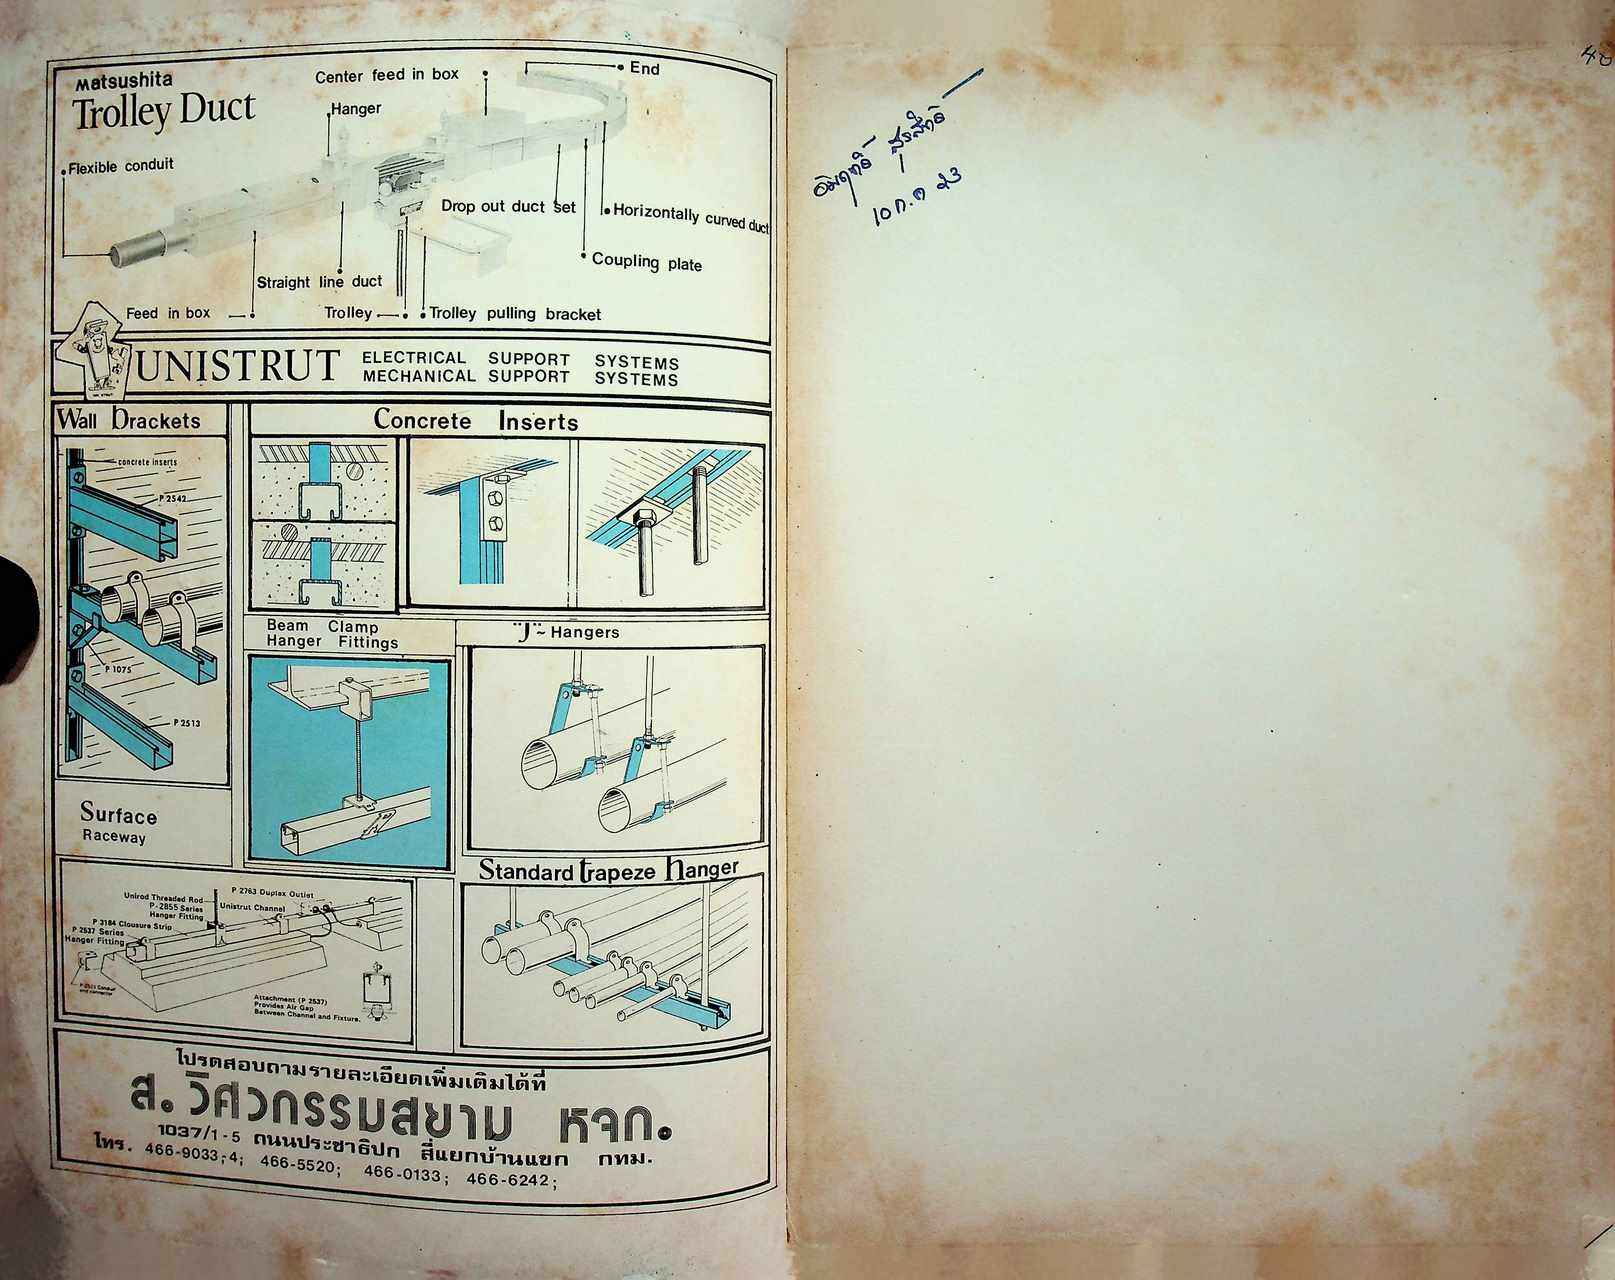 Matsushita
Trolley Duct
Center feed in box
End
Hanger
Flexible conduit
Drop out duct set
Horizontally curved duct
Coupling plate
Straight line duct
Feed in box
Trolley
Trolley pulling bracket
UNISTRUT
ELECTRICAL SUPPORT SYSTEMS
MECHANICAL SUPPORT SYSTEMS
Wall brackets
concrete inserts
P 2542
P 1075
P 2513
Concrete Inserts
Beam Clamp
Hanger Fittings
"J"~ Hangers
Surface
Raceway
P 2763 Duplax Outlet
Unirod Threaded Rod
P-2855 Series
Hanger Fitting
Unistrut Channel
P 3184 Clousure Strip
P 2537 Series
Hanger Fitting
Attachment (P 2537)
Provides Air Gap
Between Channel and Fixture.
Standard trapeze hanger
โปรดสอบถามรายละเอียดเพิ่มเติมได้ที่
ส. วิศวกรรมสยาม หจก.
1037/1-5 ถนนประชาธิปก สี่แยกบ้านแขก กทม.
โทร. 466-9033,-4; 466-5520; 466-0133; 466-6242;
๑๐ ก.ค ๒๓